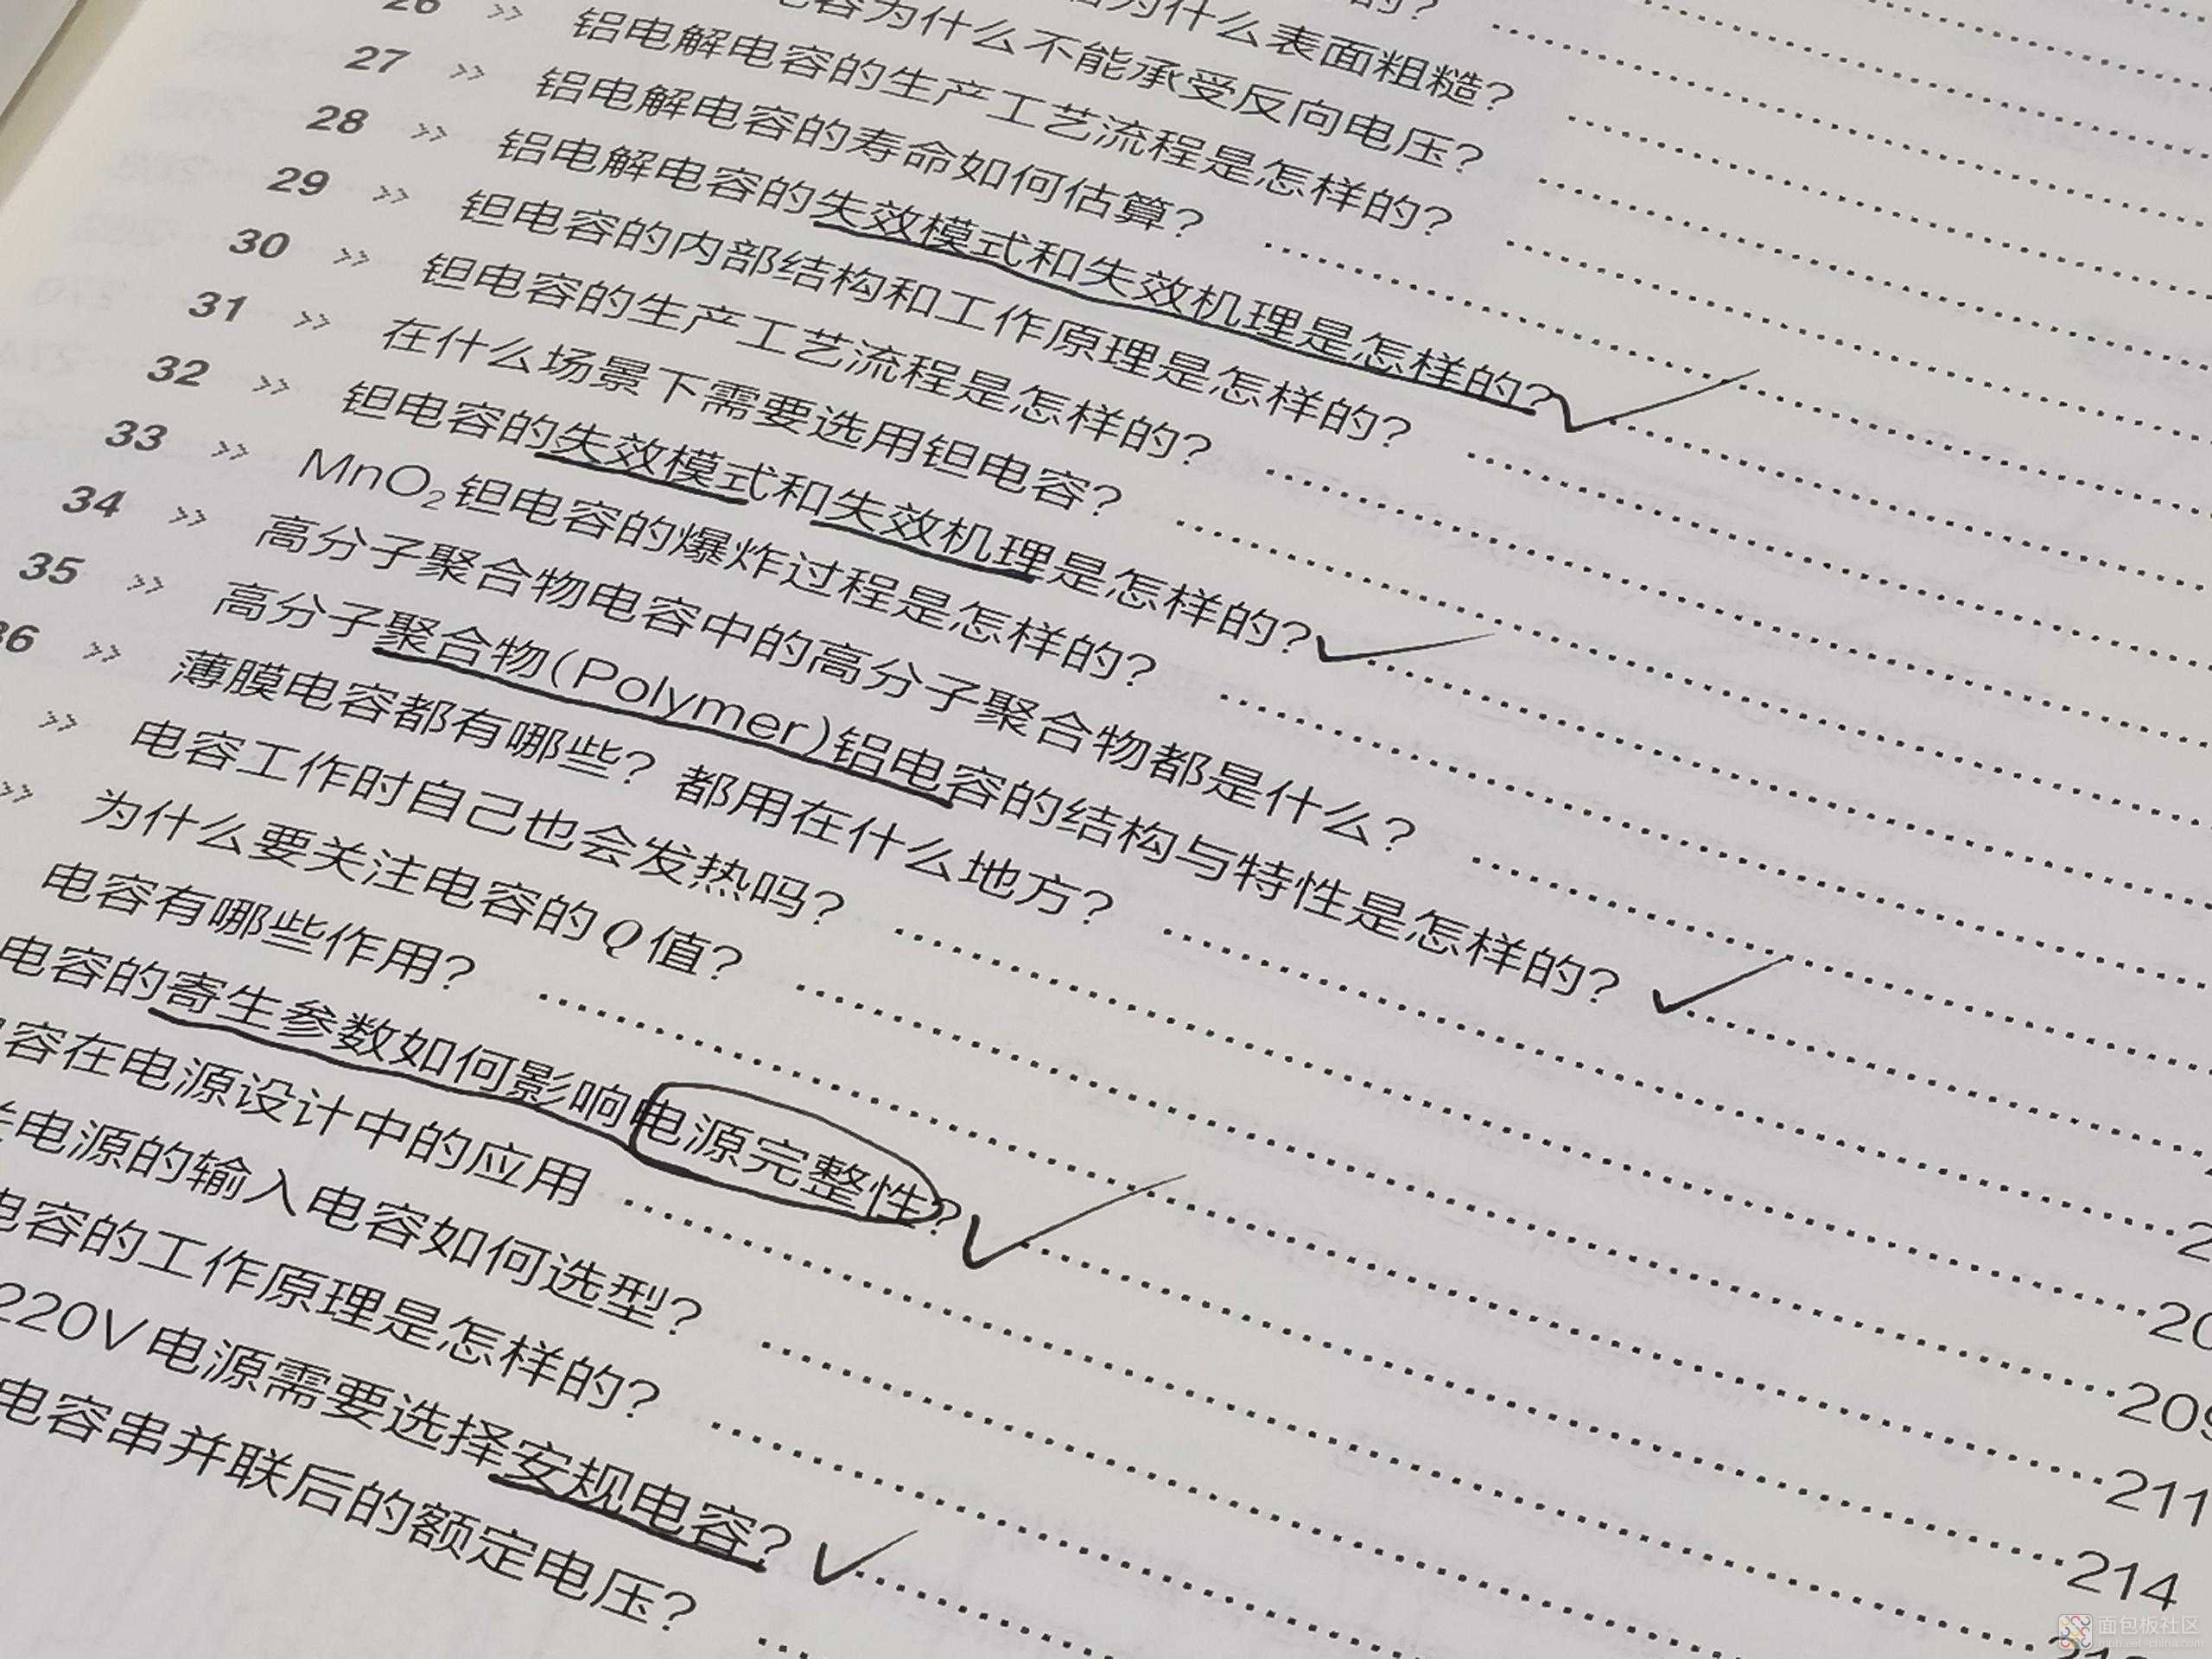 的?
为什么表面粗糙?
容为什么不能承受反向电压?
26 >> 铝电解电容的生产工艺流程是怎样的?
27 >> 铝电解电容的寿命如何估算?
28 >> 铝电解电容的失效模式和失效机理是怎样的?
29 >> 钽电容的内部结构和工作原理是怎样的?
30 >> 钽电容的生产工艺流程是怎样的?
31 >> 在什么场景下需要选用钽电容?
32 >> 钽电容的失效模式和失效机理是怎样的?
33 >> MnO₂钽电容的爆炸过程是怎样的?
34 >> 高分子聚合物电容中的高分子聚合物都是什么?
35 >> 高分子聚合物(Polymer)铝电容的结构与特性是怎样的?
36 >> 薄膜电容都有哪些? 都用在什么地方?
>> 电容工作时自己也会发热吗?
>> 为什么要关注电容的Q值?
电容有哪些作用?
电容的寄生参数如何影响电源完整性?
容在电源设计中的应用
电源的输入电容如何选型? 209
电容的工作原理是怎样的? 211
220V电源需要选择安规电容? 214
电容串并联后的额定电压?
面包板社区
mbb.eet-china.com